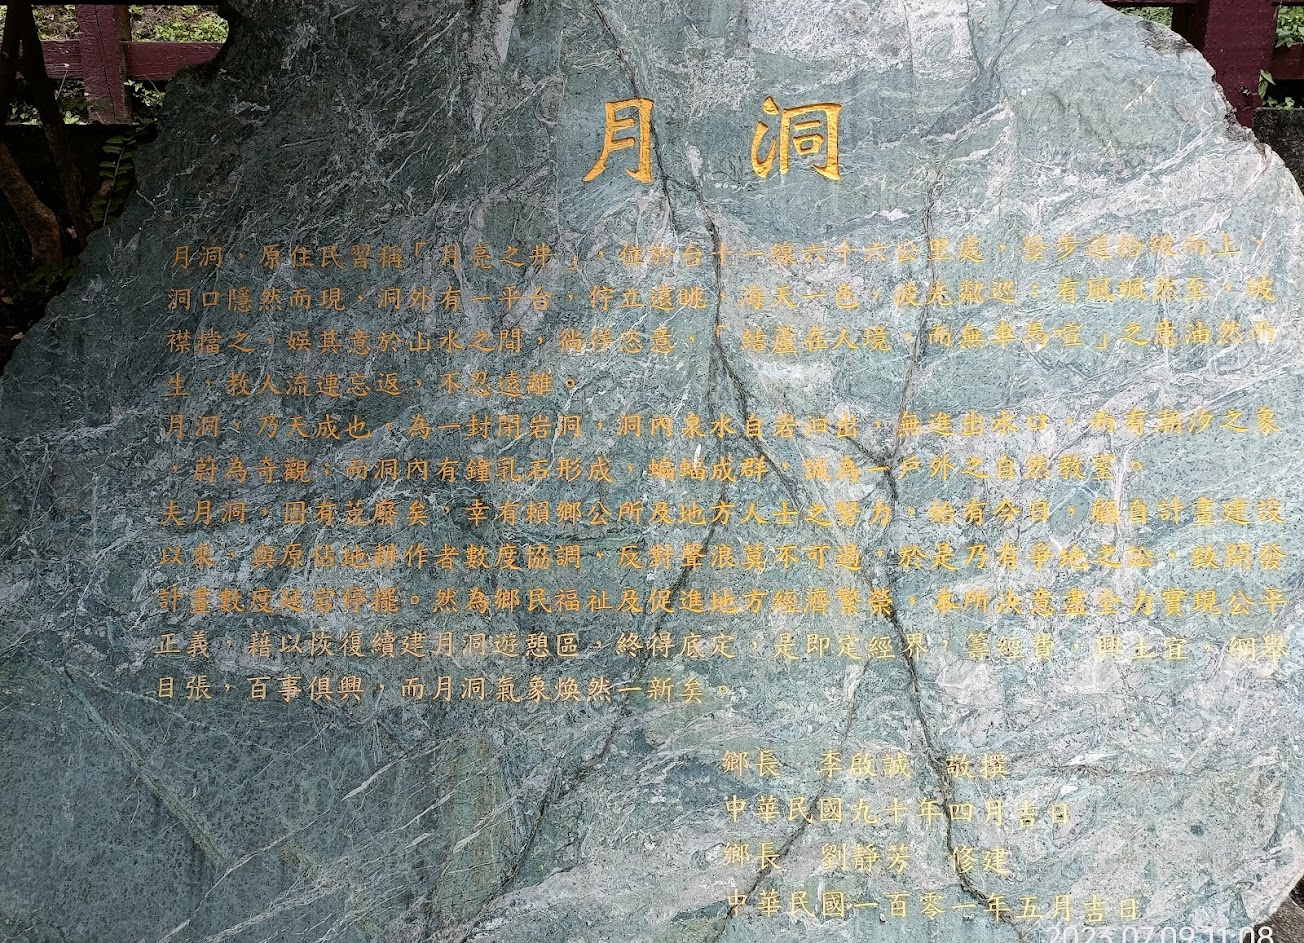 月 洞
月洞，原住民習稱「月亮之井」，位於台十一線六十六公里處，登步道拾級而上，
洞口隱然而現，洞外有一平台，佇立遠眺，海天一色，波光粼巡；有風颯然至，披
襟擋之，娛其意於山水之間，徜徉恣意，「結廬在人境，而無車馬喧」之意油然而
生，教人流連忘返，不忍遠離。
月洞，乃天成也。為一封閉岩洞，洞內泉水自岩汩出，無進出水口，而有潮汐之象
，蔚為奇觀；而洞內有鐘乳石形成，蝙蝠成群，誠為一戶外之自然教室。
夫月洞，固有荒廢矣，幸有賴鄉公所及地方人士之努力，始有今日，顧自計畫建設
以來，與原佔地耕作者數度協調，反對聲浪莫不可遏，於是乃有爭地之訟，致開發
計畫數度延宕停擺。然為鄉民福祉及促進地方經濟繁榮，本所決意盡全力實現公平
正義，藉以恢復續建月洞遊憩區，終得底定，是即定經界，籌經費，興土宜，綱舉
目張，百事俱興，而月洞氣象煥然一新矣。
鄉長 李啟誠 敬撰
中華民國九十年四月吉日
鄉長 劉靜芳 修建
中華民國一百零一年五月吉日
2023.07.09 11:08